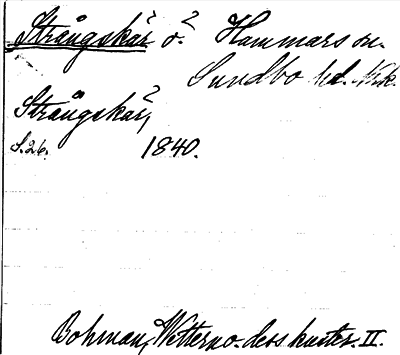 Strångskär ö? Hammars sn.
Sundbo hd. Nrk.
Strångskär,
S. 26. 1840.
Bohman, Wettern o. dess kuster. II.